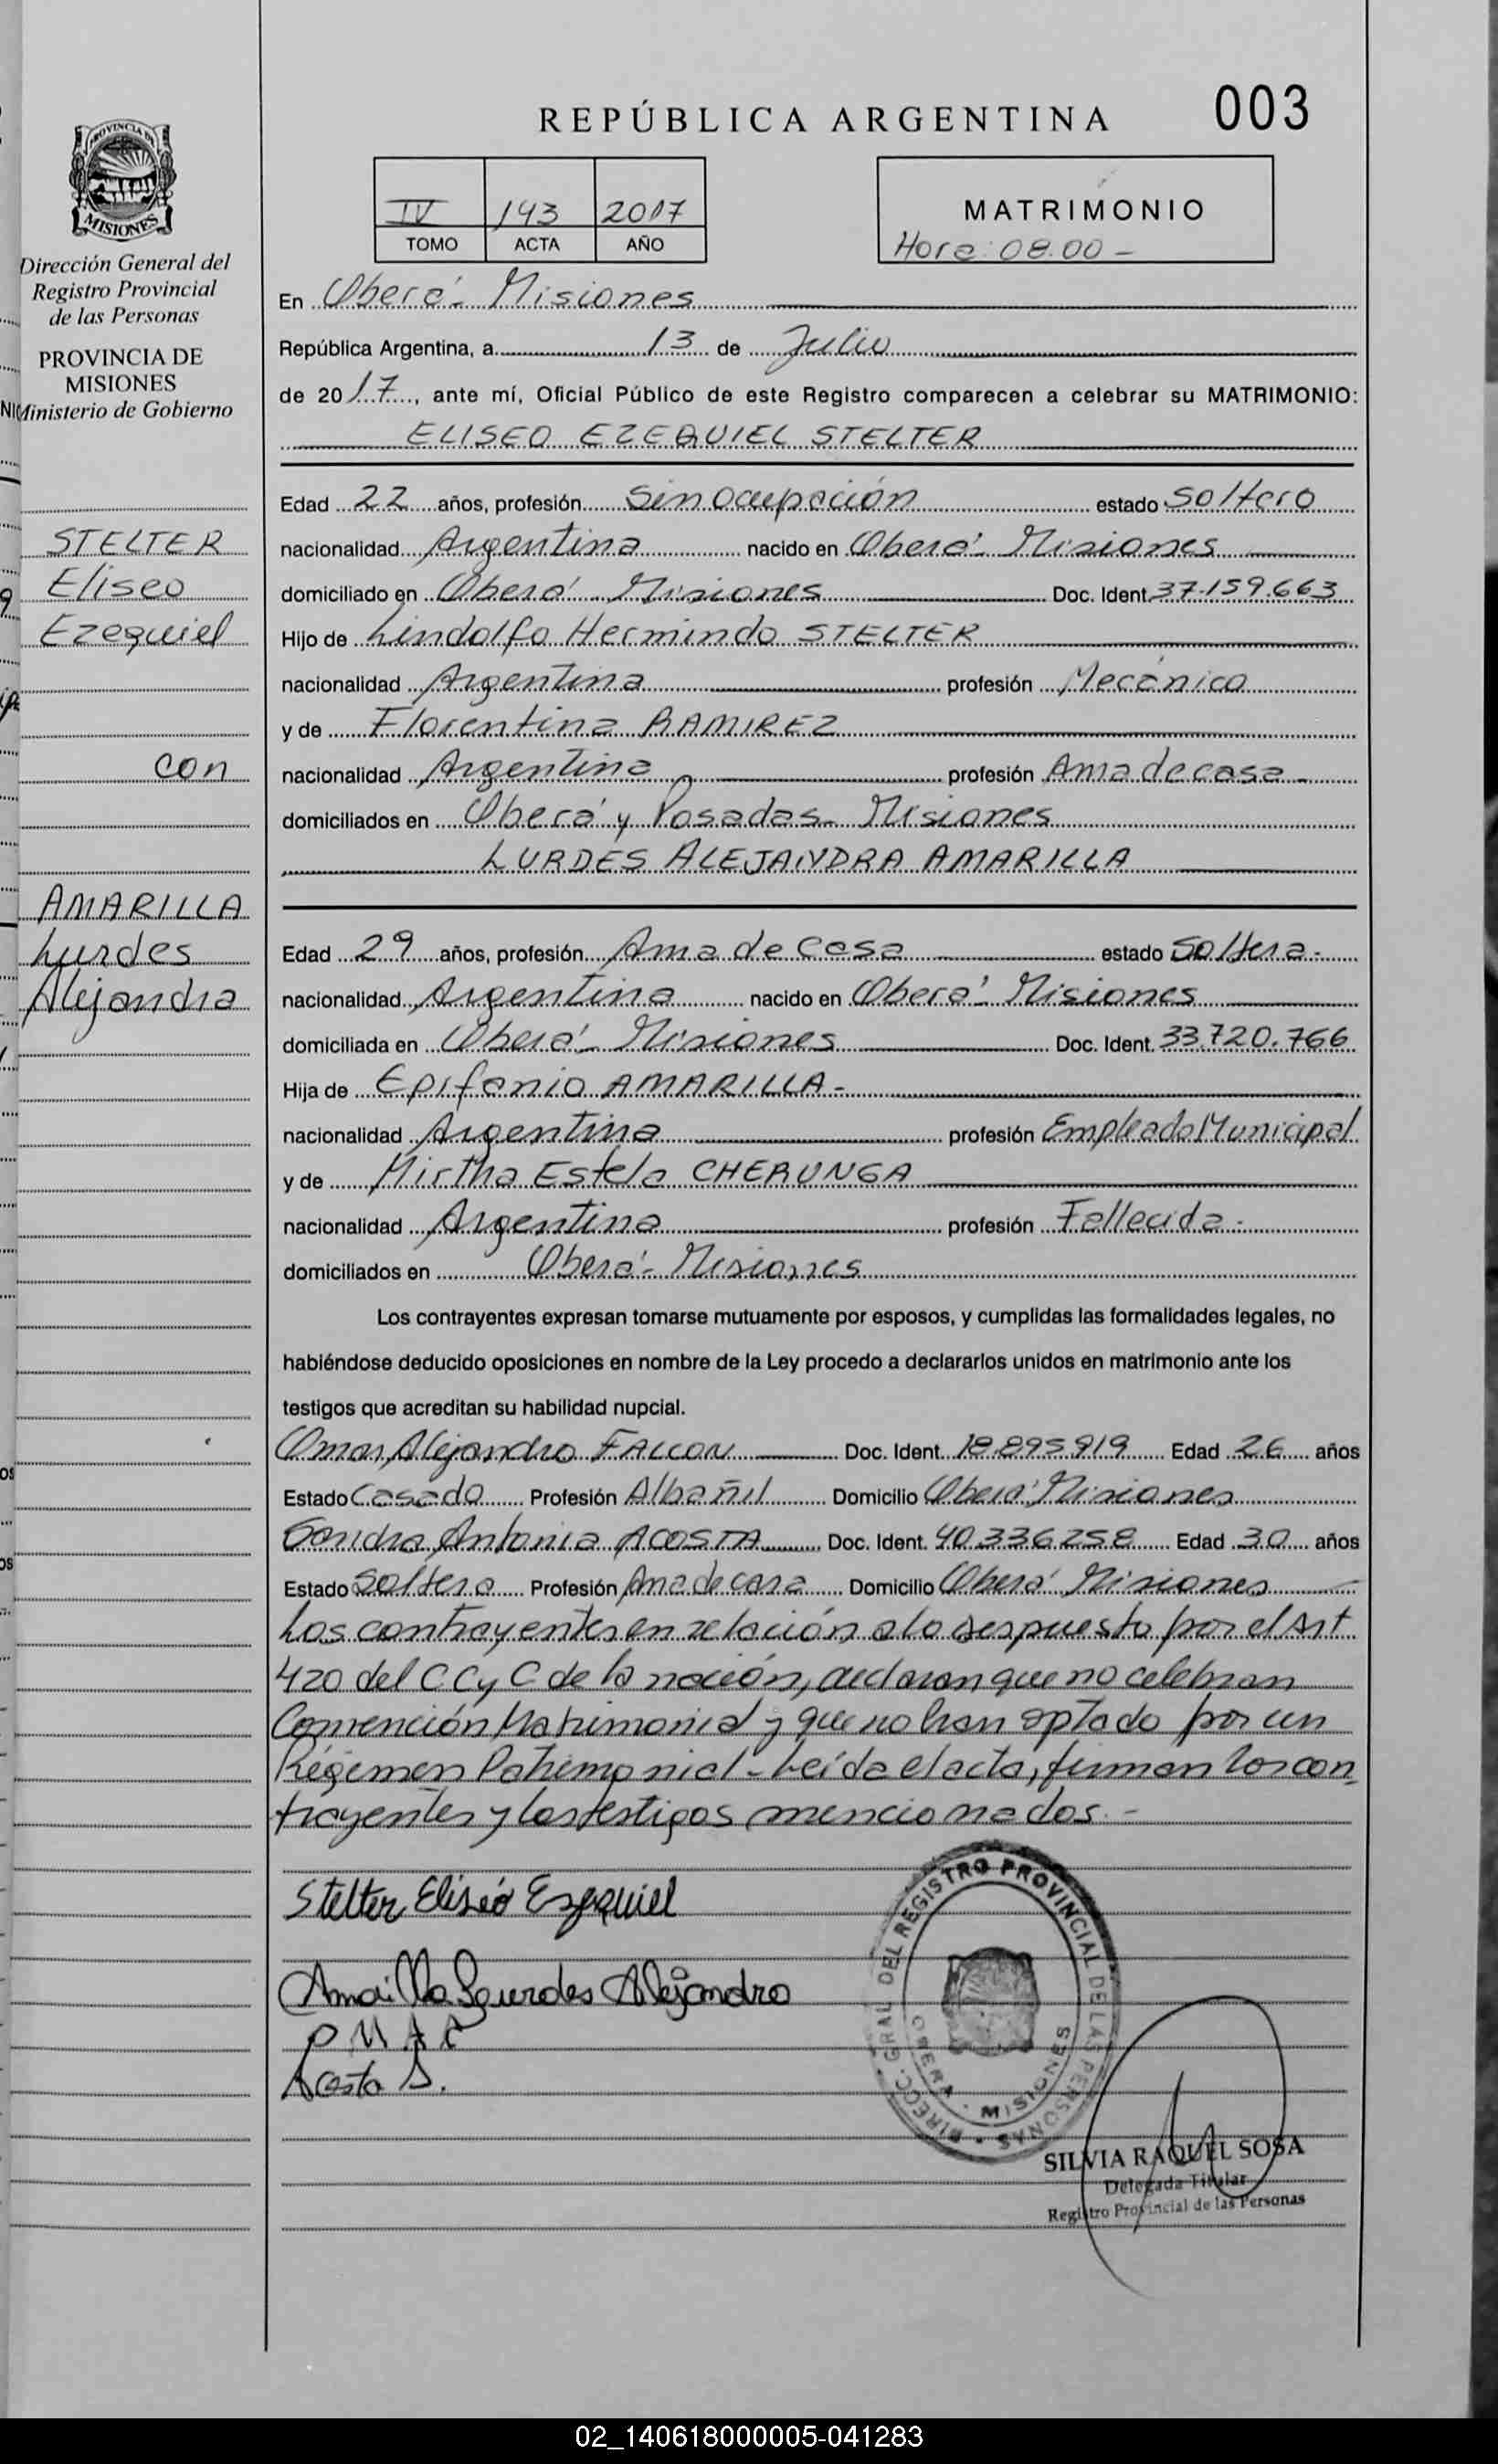 REPÚBLICA ARGENTINA
003
PROVINCIA DE
MISIONES
Dirección General del
Registro Provincial
de las Personas
PROVINCIA DE
MISIONES
Ministerio de Gobierno
IV 143 2017
TOMO ACTA AÑO
MATRIMONIO
Hora: 08.00 -
En Oberá - Misiones
República Argentina, a 13 de Julio
de 20 17, ante mí, Oficial Público de este Registro comparecen a celebrar su MATRIMONIO:
ELISEO EZEQUIEL STELTER
Edad 22 años, profesión Sin Ocupación estado Soltero
STELTER
nacionalidad Argentina nacido en Oberá - Misiones
Eliseo
domiciliado en Oberá - Misiones Doc. Ident. 37.159.663
Ezequiel
Hijo de Lindolfo Hermindo STELTER
nacionalidad Argentina profesión Mecánico
y de Florentina RAMIREZ
con
nacionalidad Argentina profesión Ama de casa -
domiciliados en Oberá y Posadas - Misiones
LURDES ALEJANDRA AMARILLA
AMARILLA
Lurdes
Edad 29 años, profesión Ama de Casa estado Soltera -
Alejandra
nacionalidad Argentina nacido en Oberá - Misiones
domiciliada en Oberá - Misiones Doc. Ident. 33.720.766
Hija de Epifanio AMARILLA -
nacionalidad Argentina profesión Empleado Municipal
y de Mirtha Estela CHERUNGA
nacionalidad Argentina profesión Fallecida -
domiciliados en Oberá - Misiones
Los contrayentes expresan tomarse mutuamente por esposos, y cumplidas las formalidades legales, no
habiéndose deducido oposiciones en nombre de la Ley procedo a declararlos unidos en matrimonio ante los
testigos que acreditan su habilidad nupcial.
Omar Alejandro FALCON Doc. Ident. 18.895.919 Edad 26 años
Estado Casado Profesión Albañil Domicilio Oberá - Misiones
Sandra Antonia ACOSTA Doc. Ident. 40.336.258 Edad 30 años
Estado Soltera Profesión Ama de casa Domicilio Oberá Misiones
Los contrayentes en relación a lo dispuesto por el Art
420 del C.C y C de la nación, declaran que no celebran
Convención Matrimonial y que no han optado por un
Régimen Patrimonial - Leída el acta, firman los con
trayentes y los testigos mencionados. -
Stelter Eliseo Ezequiel
Amarilla Lourdes Alejandra
Acosta S.
DIRECC. GRAL DEL REGISTRO PROVINCIAL DE LAS PERSONAS
OBERA - MISIONES
SILVIA RAQUEL SOSA
Delegada Titular
Registro Provincial de las Personas
02_140618000005-041283